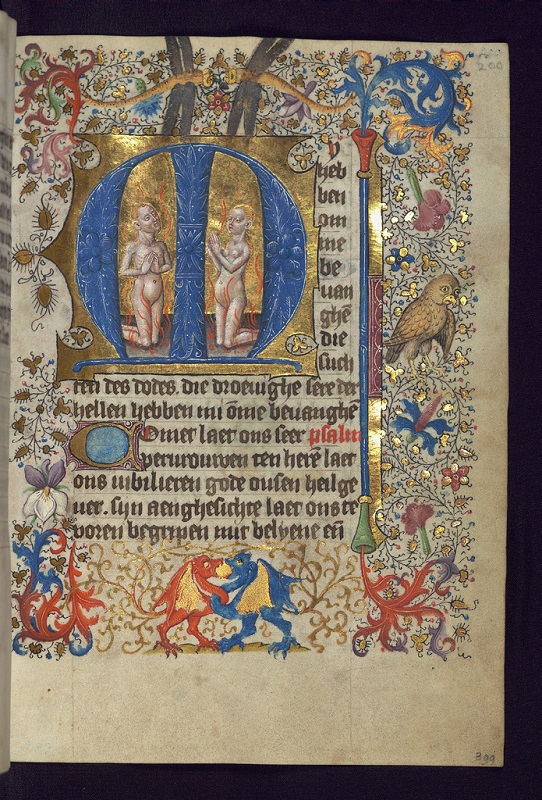 200
M y
heb
ben
om
me
be
uan
ghē
die
such
ten des dodes. die droeuighe sere der
hellen hebben mi ōme beuanghē
Comet laet ons seer psalm
ten herē laet
ons iubilieren gode onsen heilge
uer. sijn aenghesichte laet ons te
voren begripen mit belyene eñ
399